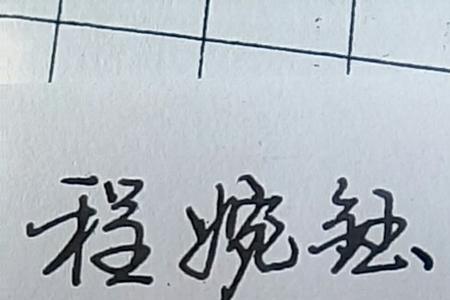 程婉钰